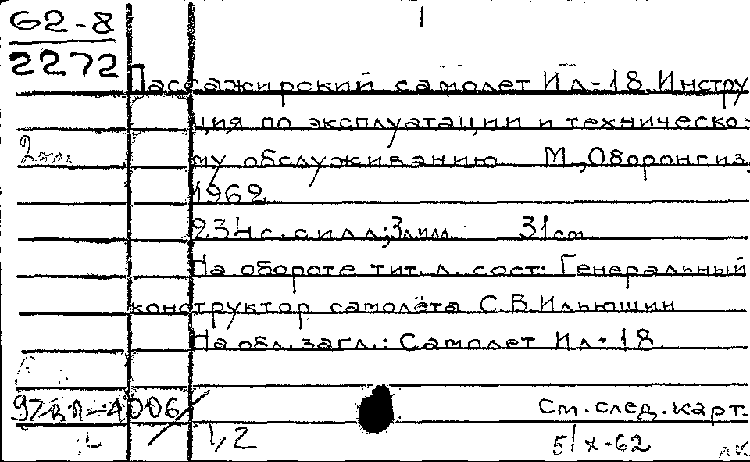 62-8
2272
1
Пассажирский самолет Ил-18. Инстру
ция по эксплуатации и техническо-
му обслуживанию М., Оборонгиз,
1962
234 с. с илл; 3 л илл. 31 см
На обороте тит. л. сост: Генеральный
конструктор самолёта С.В. Ильюшин
На обл. загл.: Самолет Ил-18
См. след. карт.
1,2
5/X-62